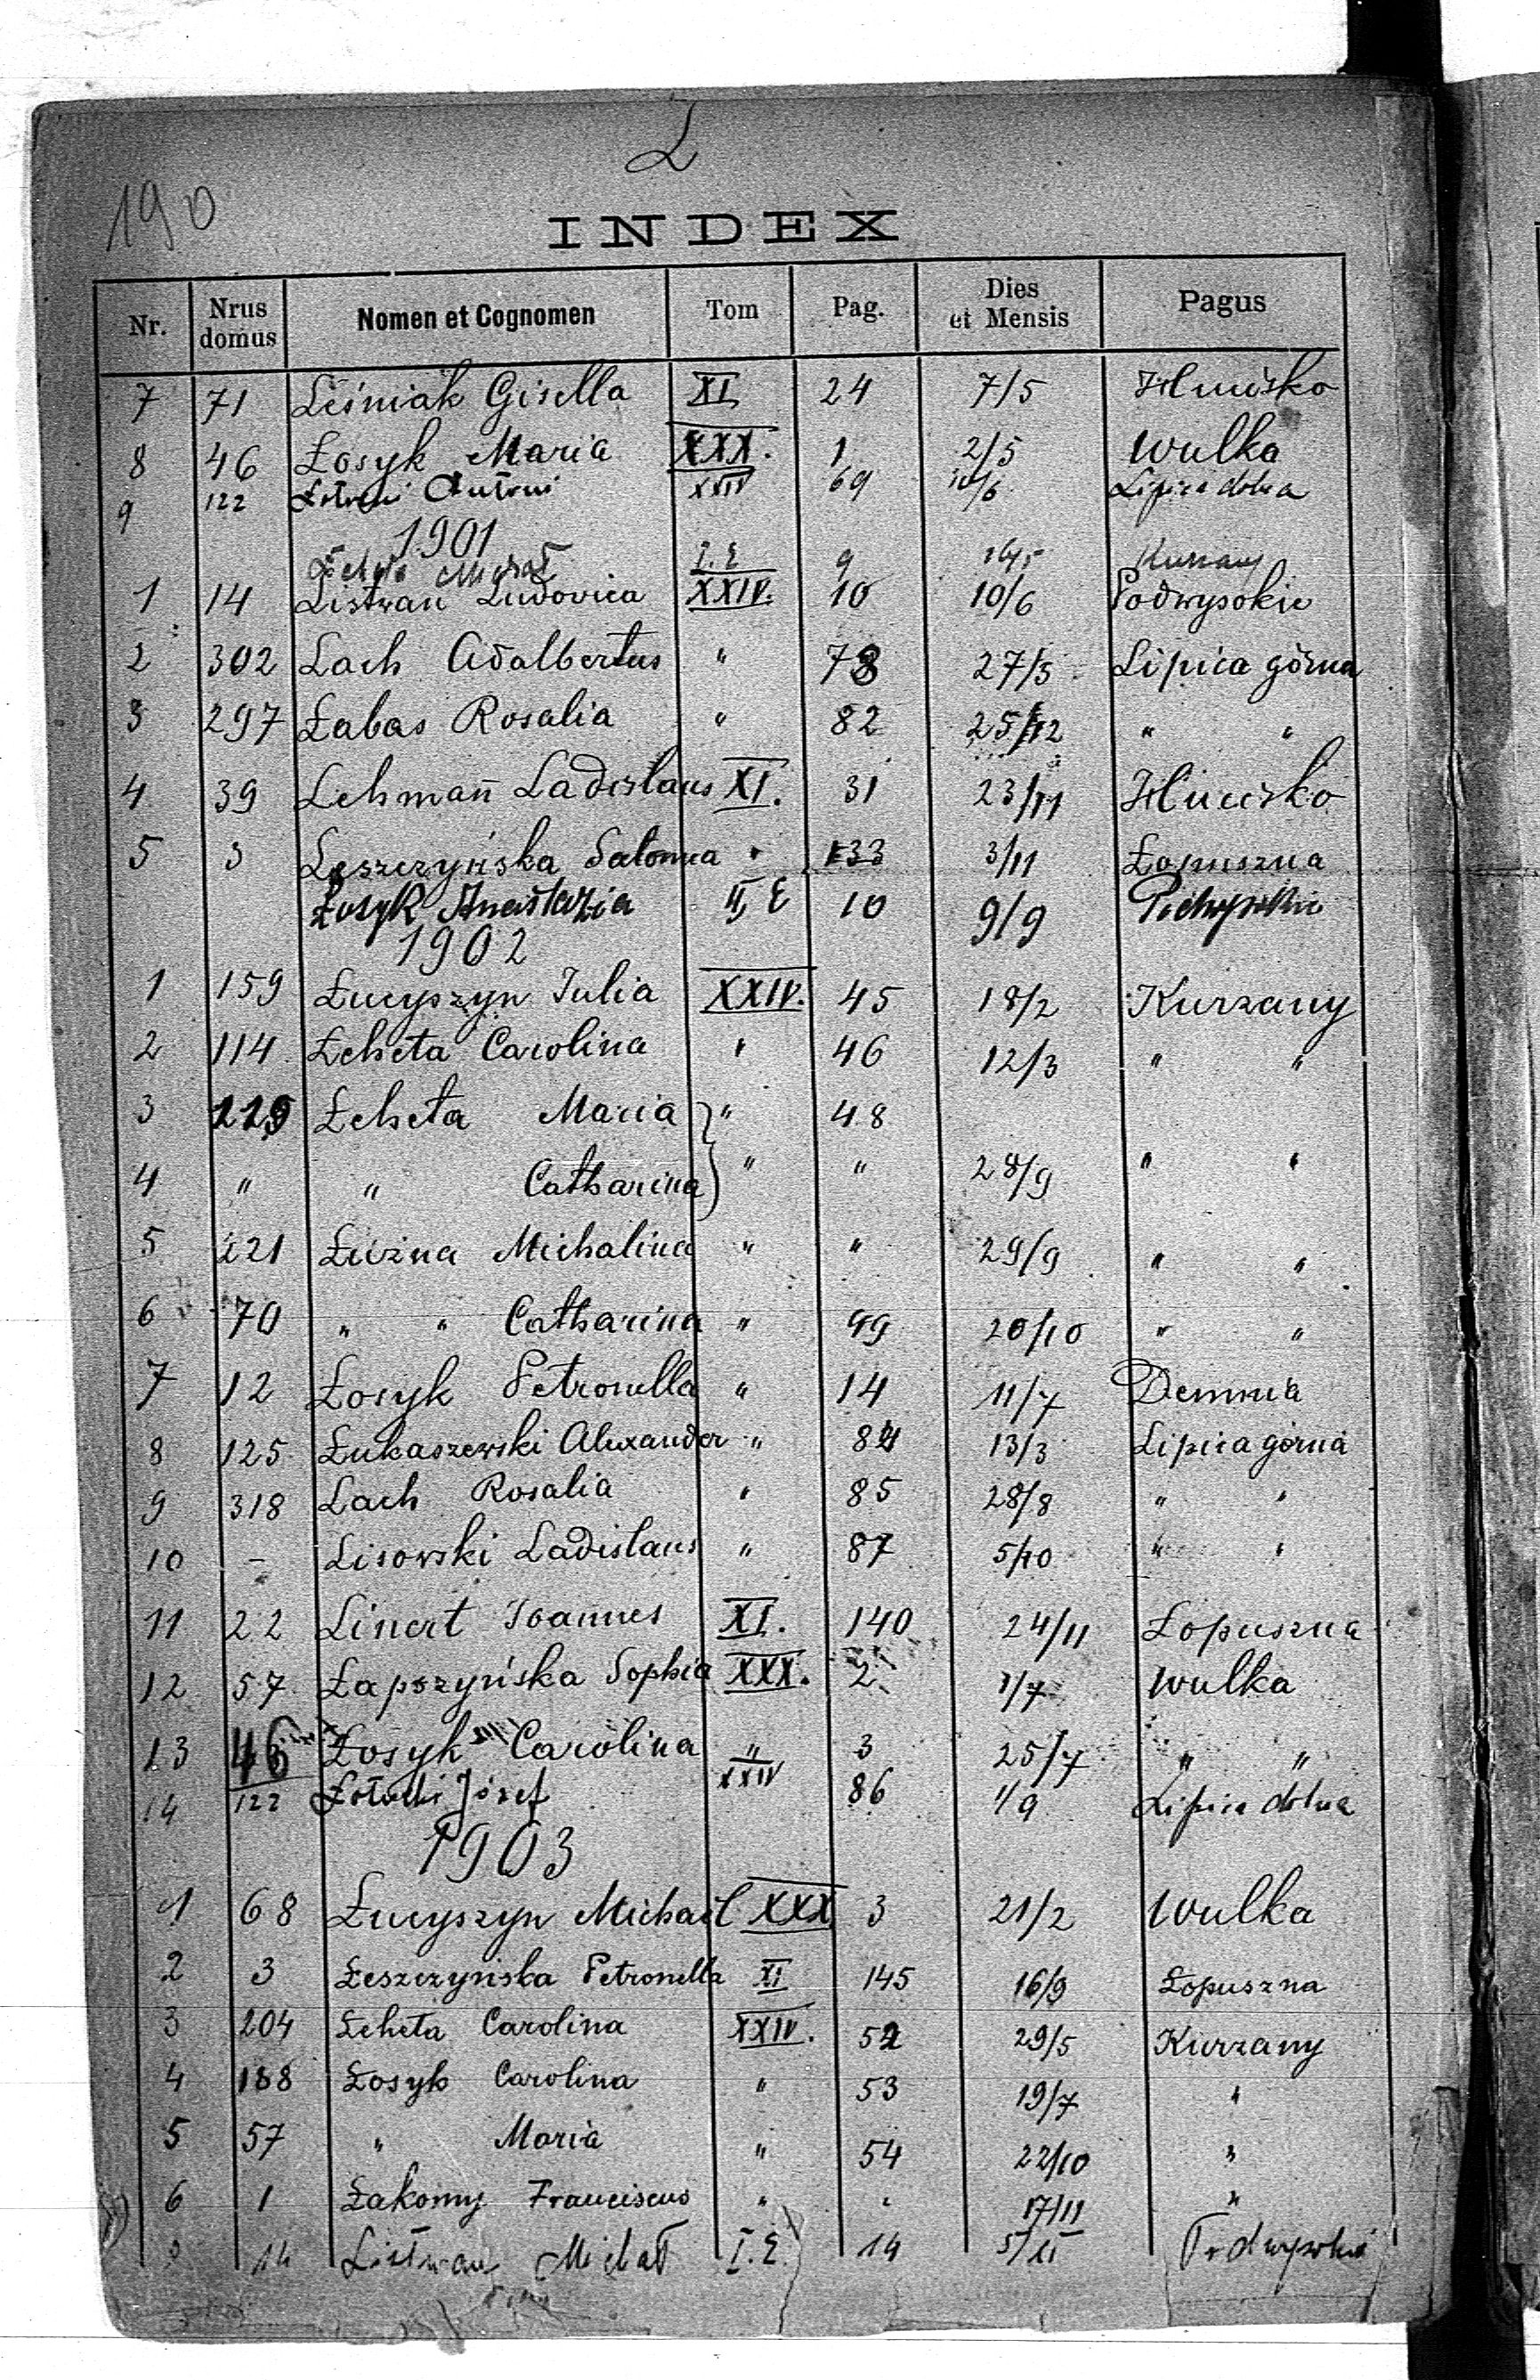 L
190
INDEX
Nr. Nrus domus Nomen et Cognomen Tom Pag. Dies et Mensis Pagus
7 71 Leśniak Gisella XI 24 7/5 Hucisko
8 46 Łosyk Maria XXX. 1 2/5 Wulka
9 122 Antoni XXIV 69 10/6 Lipica dolna
1901
I. E 9 Kurzany
1 14 Listwan Ludovica XXIV. 10 10/6 Podwysokie
2 302 Lach Adalbertus " 78 27/5 Lipica górna
3 297 Łabas Rosalia " 82 25/12 " "
4 39 Lehmann Ladislaus XI. 31 23/11 Hucisko
5 3 Leszczyńska Salomea " 133 3/11 Łopuszna
Łosyk Anastazia II, E 10 9/9
1902
1 159 Łucyszyn Julia XXIV. 45 18/2 Kurzany
2 114 Łeheta Carolina " 46 12/3 " "
3 229 Łeheta Maria } " 48
4 " " Catharina } " " 28/9 " "
5 221 Łuzna Michalina " " 29/9 " "
6 70 " " Catharina " 49 20/10 " "
7 12 Łosyk Petronella " 14 11/7 Demnia
8 125 Łukaszewski Alexander " 84 13/3 Lipica górna
9 318 Lach Rosalia " 85 28/8 " "
10 - Lisowski Ladislaus " 87 5/10 " "
11 22 Linert Joannes XI. 140 24/11 Łopuszna
12 57 Łapszyńska Sophia XXX. 2 1/7 Wulka
13 46 Łosyk Carolina " 3 25/7 " "
14 122 Józef XXIV 86 1/9 Lipica dolna
1903
1 68 Łucyszyn Michael XXX 3 21/2 Wulka
2 3 Łeszczyńska Petronella XI 145 16/9 Łopuszna
3 204 Łeheta Carolina XXIV. 52 29/5 Kurzany
4 188 Łosyk Carolina " 53 19/7 "
5 57 " Maria " 54 22/10 "
6 1 Łakomy Franciscus " " 17/11 "
14 Listwan Michał I. E. 14 5/11 Podwysokie